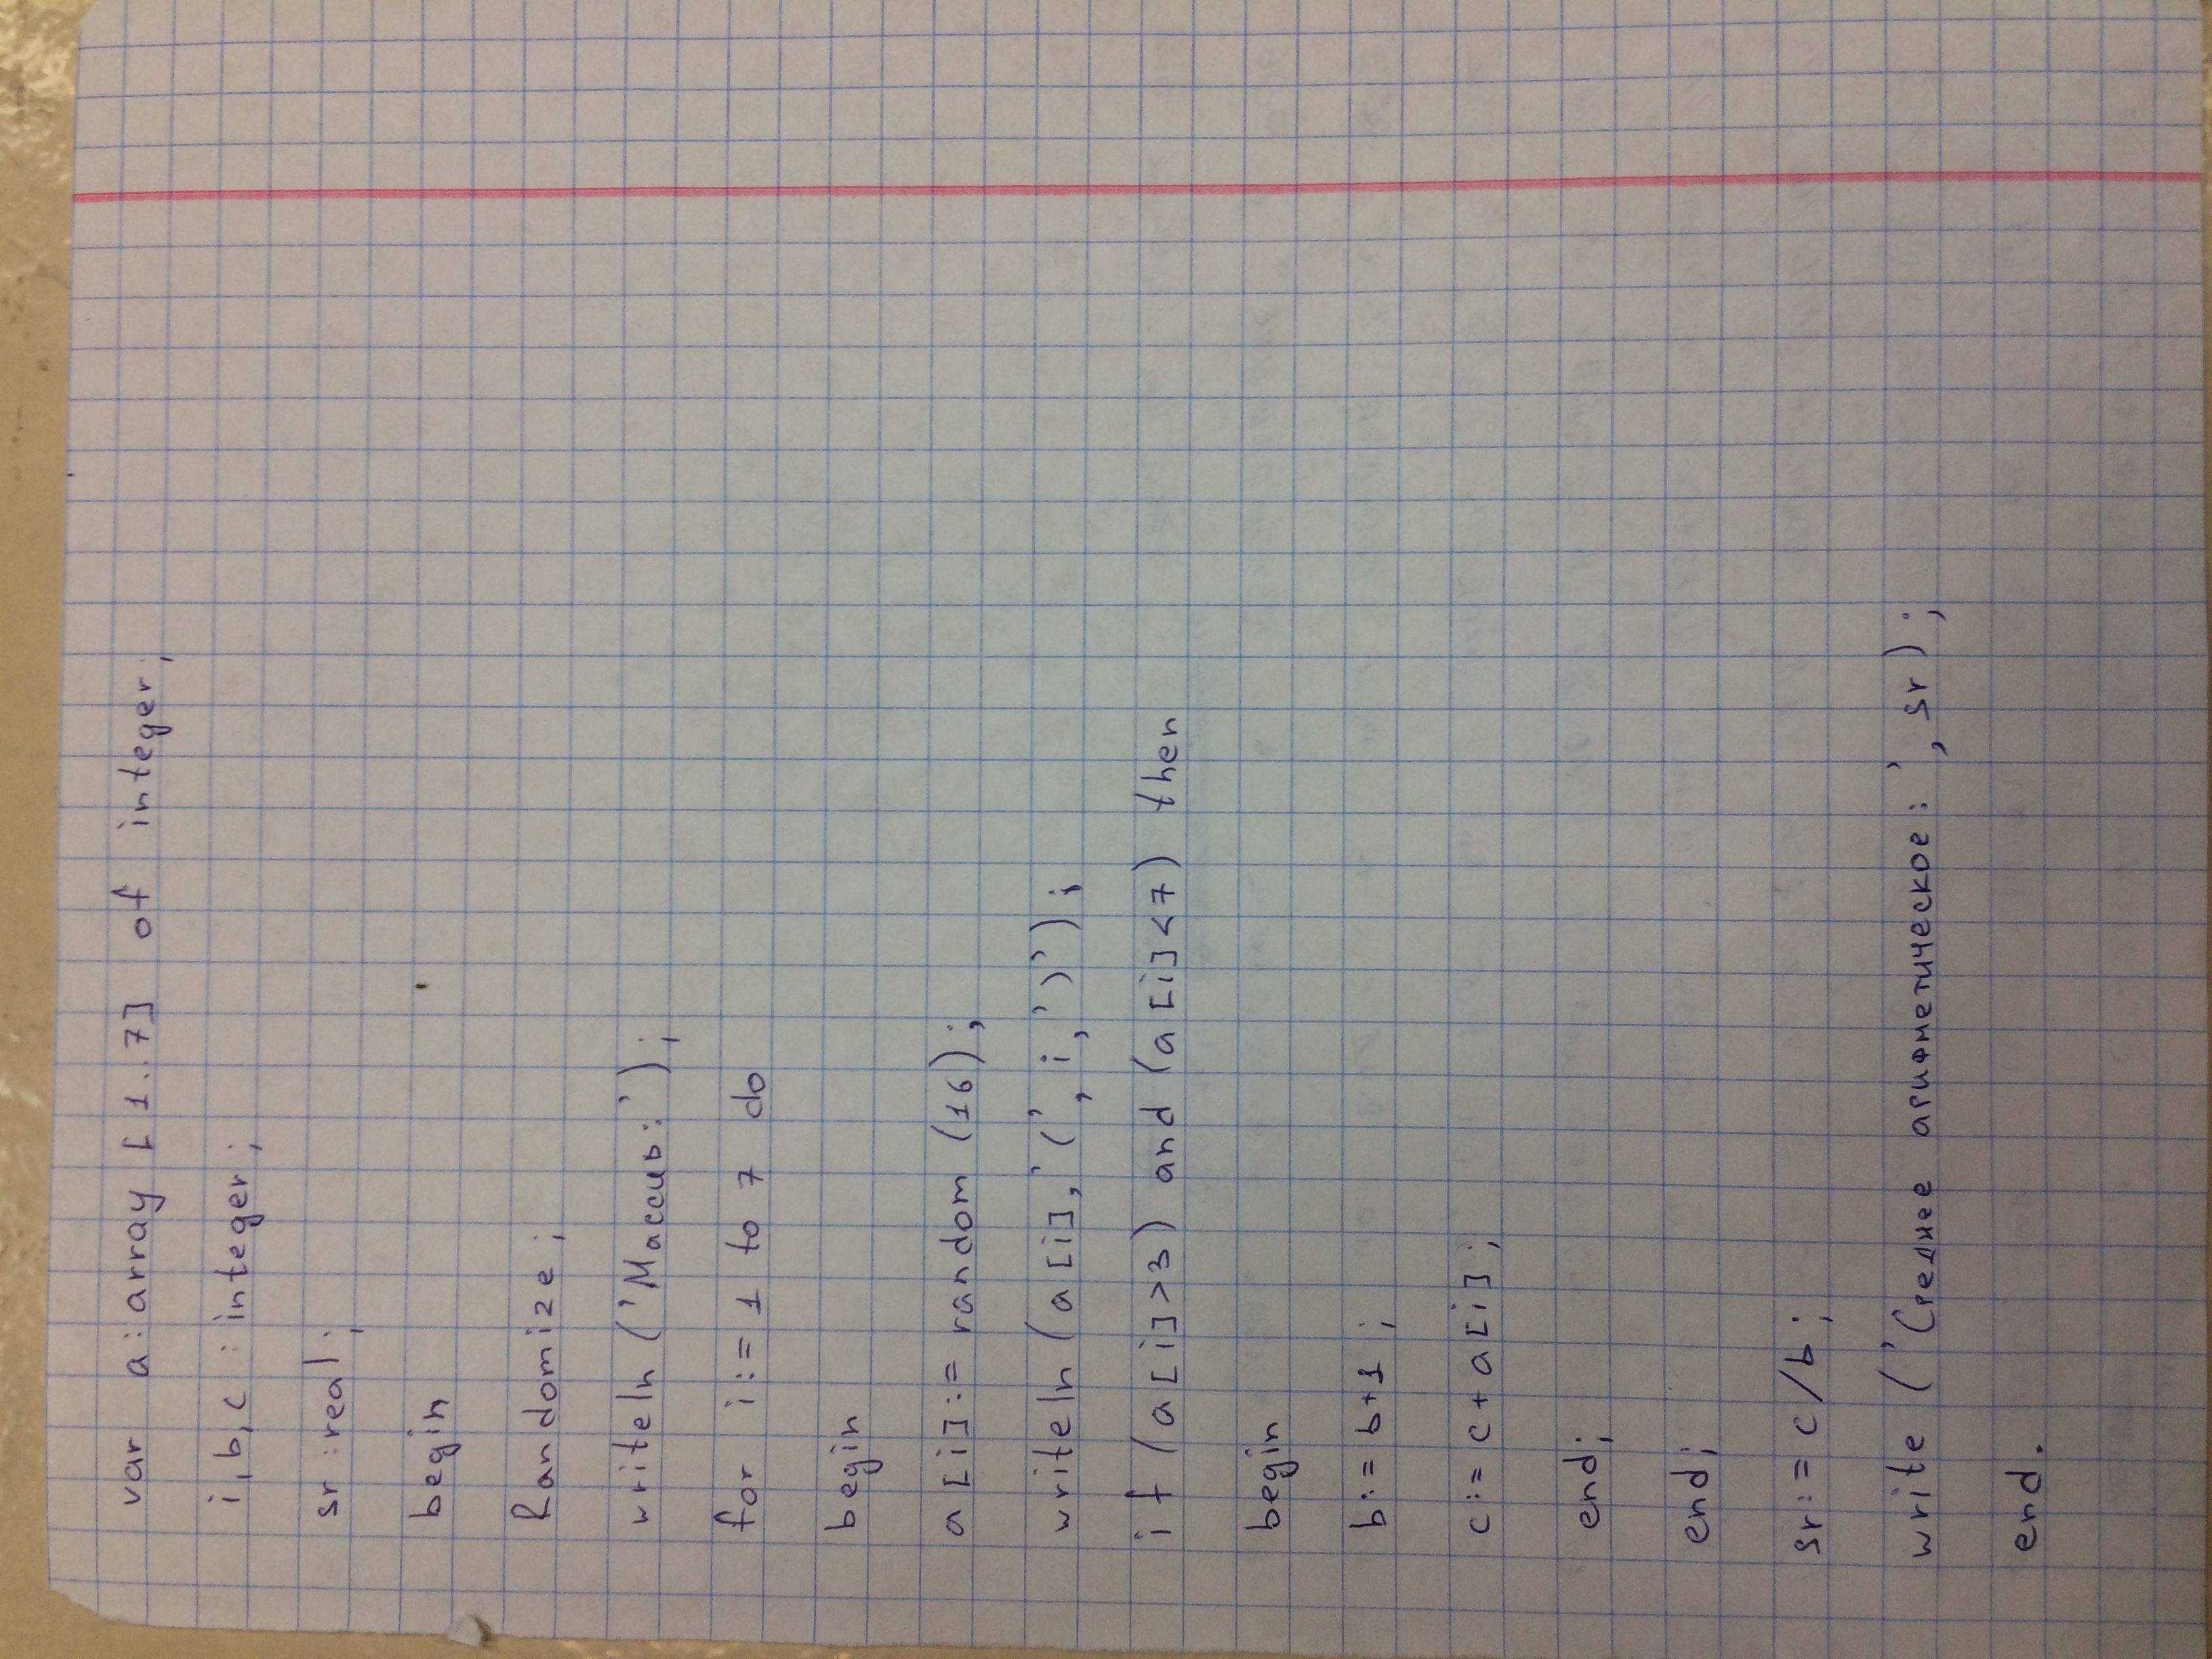 var a:array [1..7] of integer;
i,b,c : integer;
sr:real;
begin
Randomize;
writeln ('Массив:');
for i:=1 to 7 do
begin
a[i]:= random (16);
writeln (a[i],'(',i,')');
if (a[i]>3) and (a[i]<7) then
begin
b:=b+1;
c:=c+a[i];
end;
end;
sr:=c/b;
write ('Среднее арифметическое:',sr);
end.